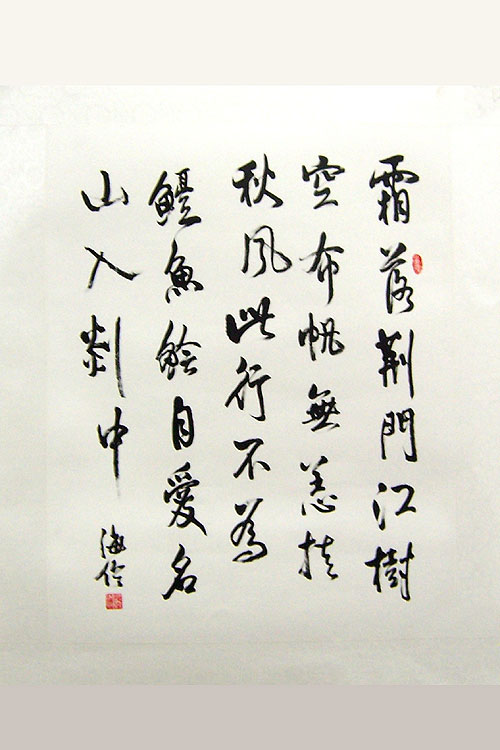 霜落荊門江樹
空布帆無恙挂
秋風此行不為
鱸魚鱠自愛名
山入剡中
海伶